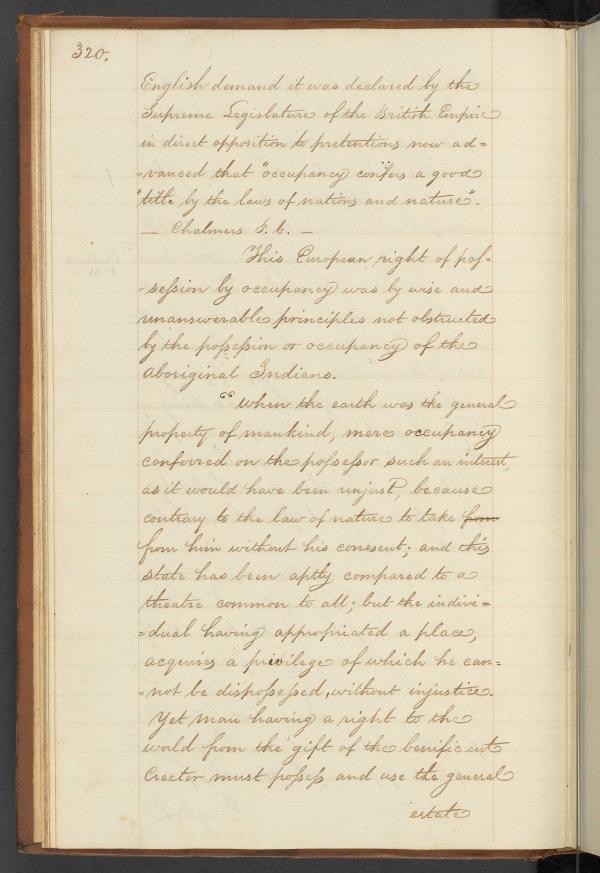 320.
English demand it was declared by the
Supreme Legislature of the British Empire
in direct opposition to pretentions now ad=
=vanced that "occupancy confers a good
"title by the laws of nations and nature".
— Chalmers P. C. —
This European right of pos=
=session by occupancy was by wise and
unanswerable principles not obstructed
by the possession or occupancy of the
aboriginal Indians.
"When the earth was the general
property of mankind, mere occupancy
conferred on the possessor such an interest,
as it would have been unjust, because
contrary to the law of nature to take from
from him without his consent; and this
state has been aptly compared to a
theatre common to all; but the indivi=
=dual having appropriated a place,
acquires a privilege of which he can=
=not be dispossessed, without injustice.
Yet man having a right to the
world from the gift of the benificent
Creator must possess and use the general
estate